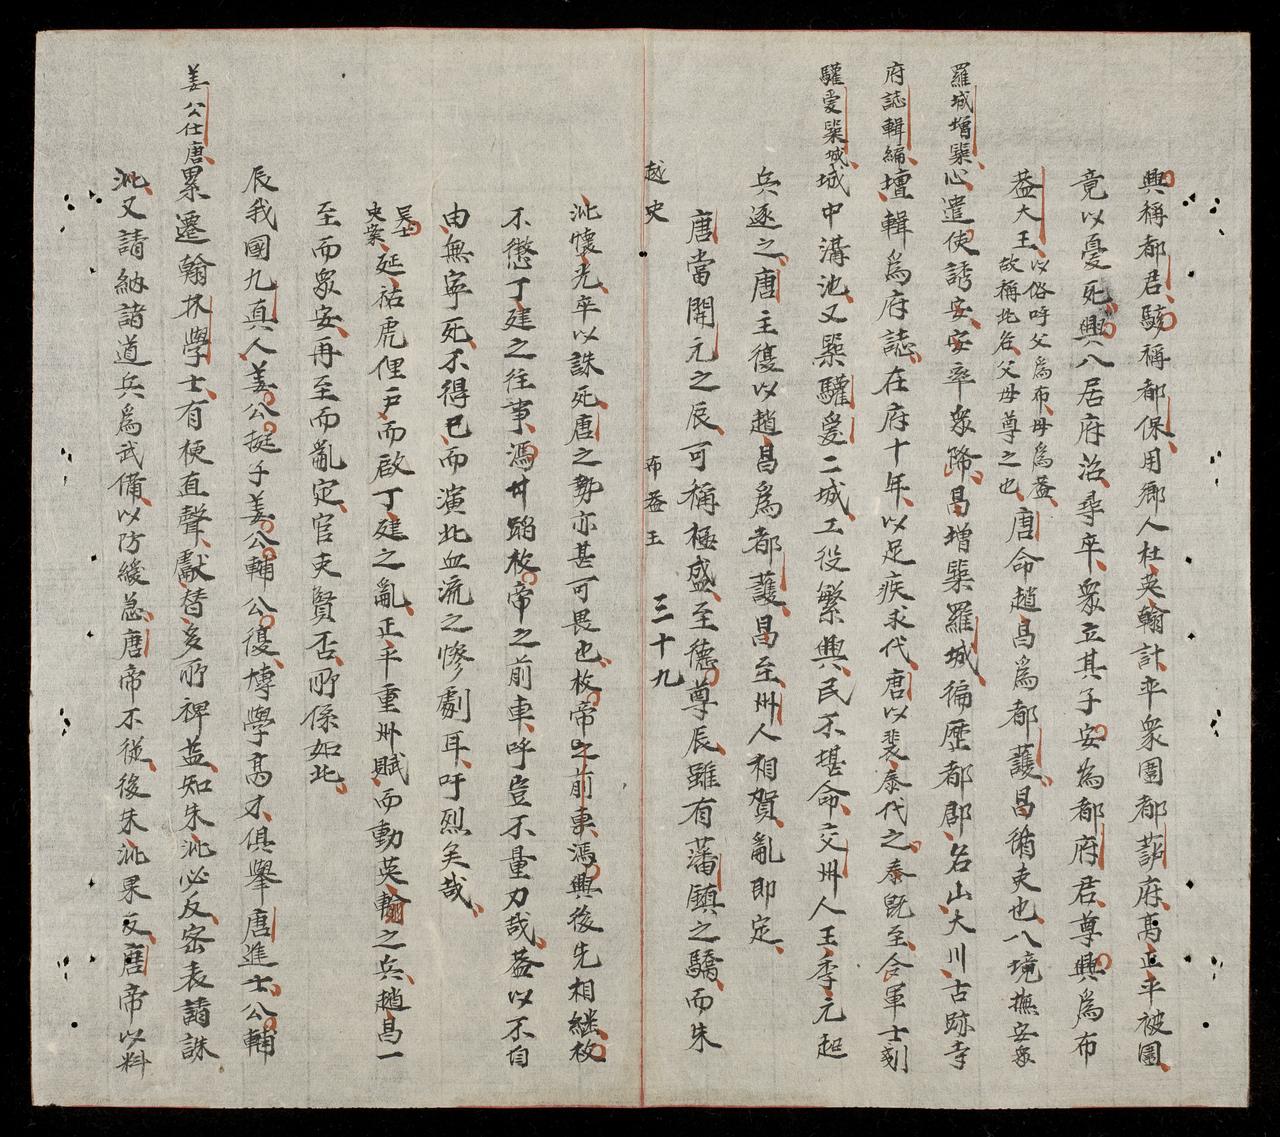 興稱都君駭稱都保用鄉人杜英翰計率衆圍都護府髙正平被圍
竟以憂死興入居府治尋卒衆立其子安為都府君尊興爲布
葢大王以俗呼父爲布母爲葢
故稱此名父母尊之也唐命趙昌爲都護昌循吏也入境撫安衆
羅城增築
心遣使誘安安率衆歸昌增築羅城徧歷都郡名山大川古跡寺
府誌輯編
壇輯爲府誌在府十年以足疾求代唐以裴泰代之泰旣至合軍士刻
驩愛築城
城中溝池又築驩愛二城工役繁興民不堪命交州人王季元起
兵逐之唐主復以趙昌爲都護昌至州人相賀亂即定
唐當開元之辰可稱極盛至德尊辰雖有藩鎮之驕而朱
越史
布葢王
三十九
泚懷光卒以誅死唐之勢亦甚可畏也枚帝之前車馮興後先相継枚
不懲丁建之往事馮廾蹈枚帝之前車呼豈不量力哉葢以不自
由無寧死不得已而演此血流之慘劇耳吁烈矣哉
吴士
史案延祐虎俚户而啟丁建之亂正平重州賦而動英翰之兵趙昌一
至而衆安再至而亂定官吏賢否所係如此
辰我國九真人姜公挺子姜公輔公復博學髙才俱舉唐進士公輔
姜公仕唐
累遷翰林學士有梗直聲獻替多所裨益知朱泚必反密表請誅
泚又請納諸道兵爲武備以防緩急唐帝不從後朱泚果反唐帝以料